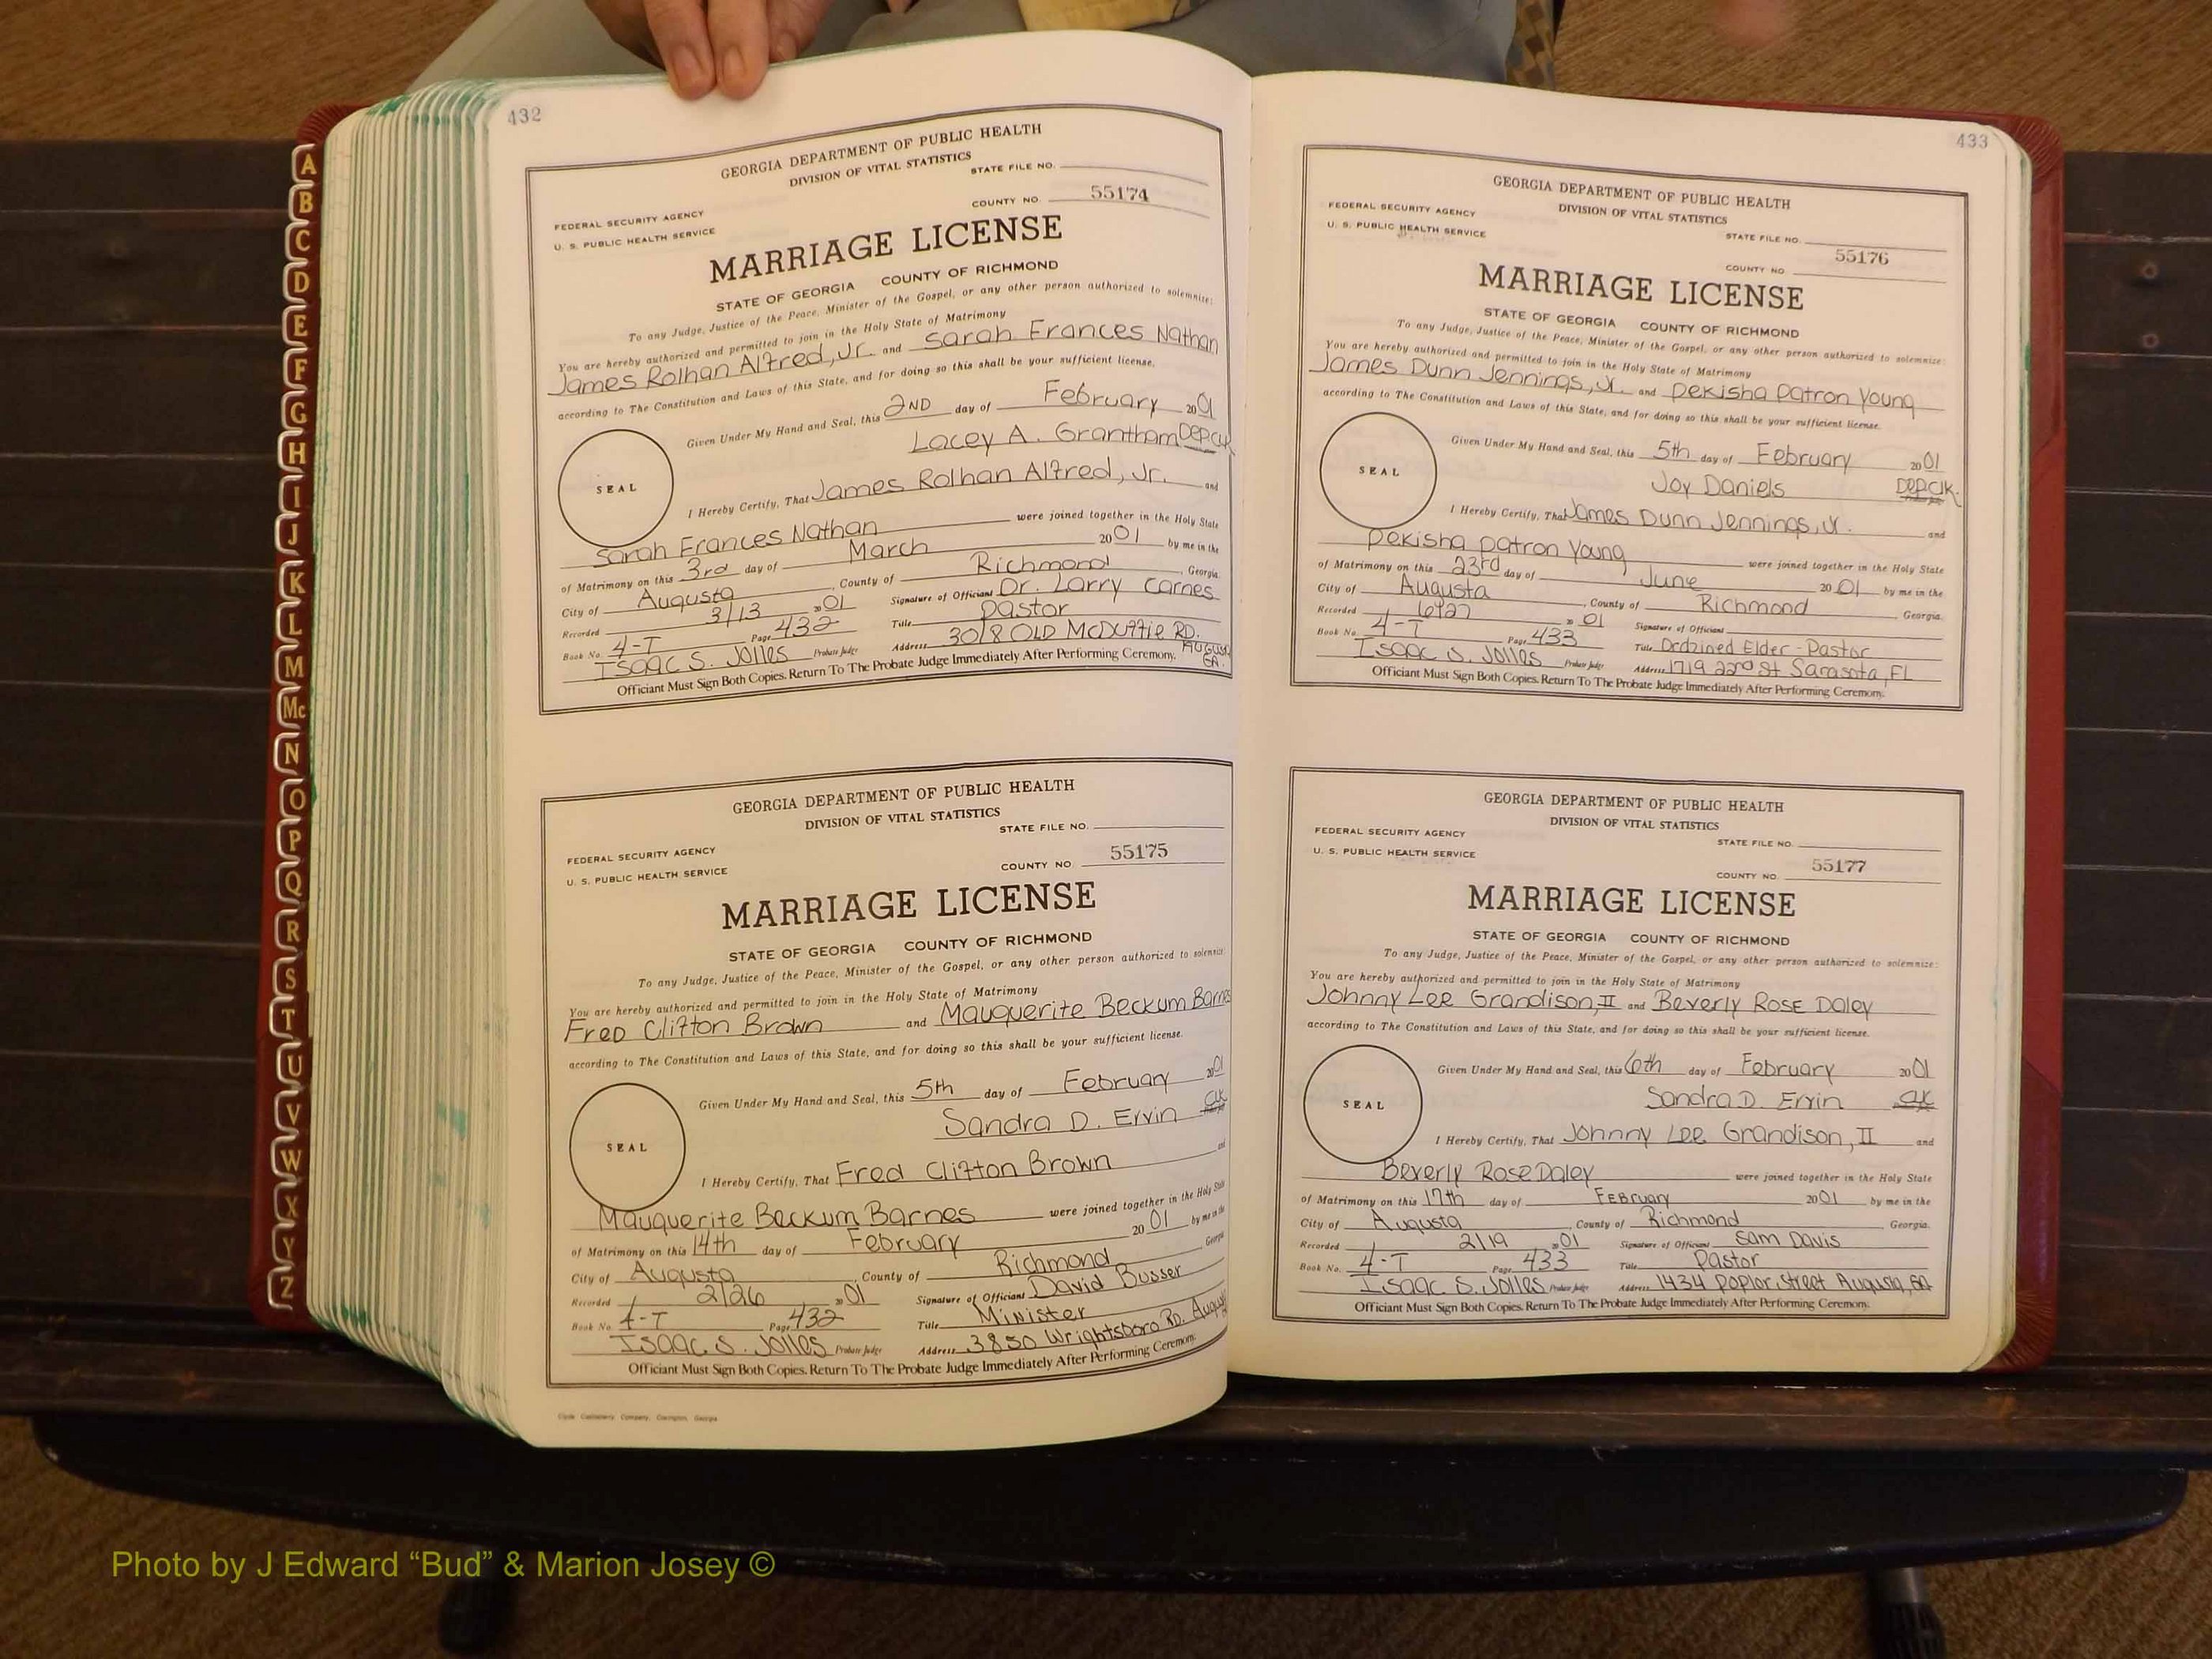 A
B
C
D
E
F
G
H
I
J
K
L
M
Mc
N
O
P
Q
R
S
T
U
V
W
X
Y
Z
432
GEORGIA DEPARTMENT OF PUBLIC HEALTH
DIVISION OF VITAL STATISTICS
STATE FILE NO.
FEDERAL SECURITY AGENCY
COUNTY NO. 55174
U. S. PUBLIC HEALTH SERVICE
MARRIAGE LICENSE
STATE OF GEORGIA COUNTY OF RICHMOND
To any Judge, Justice of the Peace, Minister of the Gospel, or any other person authorized to solemnize:
You are hereby authorized and permitted to join in the Holy State of Matrimony
James Rolhan Alfred, Jr. and Sarah Frances Nathan
according to The Constitution and Laws of this State, and for doing so this shall be your sufficient license.
Given Under My Hand and Seal, this 2ND day of February 2001
Lacey A. Grantham Dep Clk
SEAL
I Hereby Certify, That James Rolhan Alfred, Jr. and
Sarah Frances Nathan were joined together in the Holy State
of Matrimony on this 3rd day of March 2001 by me in the
City of Augusta, County of Richmond, Georgia.
Recorded 3/13 2001 Signature of Officiant Dr. Larry Carnes
Book No. 4-T Page 432 Title Pastor
Isaac S. Jolles Probate Judge Address 3018 OLD McDuffie RD. Augusta GA.
Officiant Must Sign Both Copies. Return To The Probate Judge Immediately After Performing Ceremony.
GEORGIA DEPARTMENT OF PUBLIC HEALTH
DIVISION OF VITAL STATISTICS
STATE FILE NO.
FEDERAL SECURITY AGENCY
COUNTY NO. 55175
U. S. PUBLIC HEALTH SERVICE
MARRIAGE LICENSE
STATE OF GEORGIA COUNTY OF RICHMOND
To any Judge, Justice of the Peace, Minister of the Gospel, or any other person authorized to solemnize:
You are hereby authorized and permitted to join in the Holy State of Matrimony
Fred Clifton Brown and Mauguerite Beckum Barnes
according to The Constitution and Laws of this State, and for doing so this shall be your sufficient license.
Given Under My Hand and Seal, this 5th day of February 2001
Sandra D. Ervin Clk
SEAL
I Hereby Certify, That Fred Clifton Brown and
Mauguerite Beckum Barnes were joined together in the Holy State
of Matrimony on this 14th day of February 2001 by me in the
City of Augusta, County of Richmond Georgia
Recorded 2/26 2001 Signature of Officiant David Busser
Book No. 4-T Page 432 Title Minister
Isaac S. Jolles Probate Judge Address 3850 Wrightsboro RD. August
Officiant Must Sign Both Copies. Return To The Probate Judge Immediately After Performing Ceremony.
433
GEORGIA DEPARTMENT OF PUBLIC HEALTH
DIVISION OF VITAL STATISTICS
FEDERAL SECURITY AGENCY
U. S. PUBLIC HEALTH SERVICE
STATE FILE NO.
COUNTY NO 55176
MARRIAGE LICENSE
STATE OF GEORGIA COUNTY OF RICHMOND
To any Judge, Justice of the Peace, Minister of the Gospel, or any other person authorized to solemnize:
You are hereby authorized and permitted to join in the Holy State of Matrimony
James Dunn Jennings, Jr. and Dekisha Patron Young
according to The Constitution and Laws of this State, and for doing so this shall be your sufficient license.
Given Under My Hand and Seal, this 5th day of February 2001
Joy Daniels Dep Clk.
SEAL
I Hereby Certify, That James Dunn Jennings, Jr. and
Dekisha Patron Young were joined together in the Holy State
of Matrimony on this 23rd day of June 2001 by me in the
City of Augusta, County of Richmond, Georgia.
Recorded 6/27 2001 Signature of Officiant
Book No. 4-T Page 433 Title Ordained Elder-Pastor
Isaac S. Jolles Probate Judge Address 1719 22nd St Sarasota, FL
Officiant Must Sign Both Copies. Return To The Probate Judge Immediately After Performing Ceremony.
GEORGIA DEPARTMENT OF PUBLIC HEALTH
DIVISION OF VITAL STATISTICS
FEDERAL SECURITY AGENCY
STATE FILE NO.
U. S. PUBLIC HEALTH SERVICE
COUNTY NO. 55177
MARRIAGE LICENSE
STATE OF GEORGIA COUNTY OF RICHMOND
To any Judge, Justice of the Peace, Minister of the Gospel, or any other person authorized to solemnize:
You are hereby authorized and permitted to join in the Holy State of Matrimony
Johnny Lee Grandison, II and Beverly Rose Daley
according to The Constitution and Laws of this State, and for doing so this shall be your sufficient license.
Given Under My Hand and Seal, this 6th day of February 2001
Sandra D. Ervin Clk
SEAL
I Hereby Certify, That Johnny Lee Grandison, II and
Beverly Rose Daley were joined together in the Holy State
of Matrimony on this 17th day of February 2001 by me in the
City of Augusta, County of Richmond, Georgia.
Recorded 2/19 2001 Signature of Officiant Sam Davis
Book No. 4-T Page 433 Title Pastor
Isaac S. Jolles Probate Judge Address 1434 Poplar Street Augusta, GA
Officiant Must Sign Both Copies. Return To The Probate Judge Immediately After Performing Ceremony.
Photo by J Edward “Bud” & Marion Josey ©